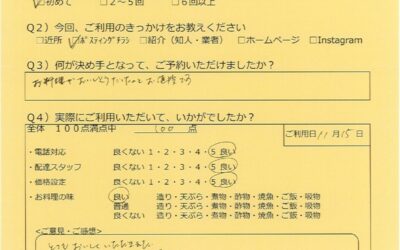 ☑初めて □2～5回 □6回以上
Q2）今回、ご利用のきっかけをお教えください
□近所 ☑ポスティングチラシ □紹介（知人・業者） □ホームページ □Instagram
Q3）何が決め手となって、ご予約いただけましたか？
お料理がおいしそうだったのとお値段です
Q4）実際にご利用いただいて、いかがでしたか？
全体 100点満点中 100 点
ご利用日 11月15日
・電話対応 良くない 1・2・3・4・5 良い
・配達スタッフ 良くない 1・2・3・4・5 良い
・価格設定 良くない 1・2・3・4・5 良い
・お料理の味 良い 造り・天ぷら・煮物・酢物・焼魚・ご飯・吸物
普通 造り・天ぷら・煮物・酢物・焼魚・ご飯・吸物
良くない 造り・天ぷら・煮物・酢物・焼魚・ご飯・吸物
<ご意見・ご感想>
とてもおいしくいただきました